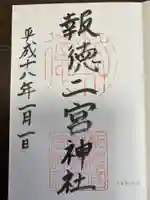 報徳二宮神社
平成十八年一月一日